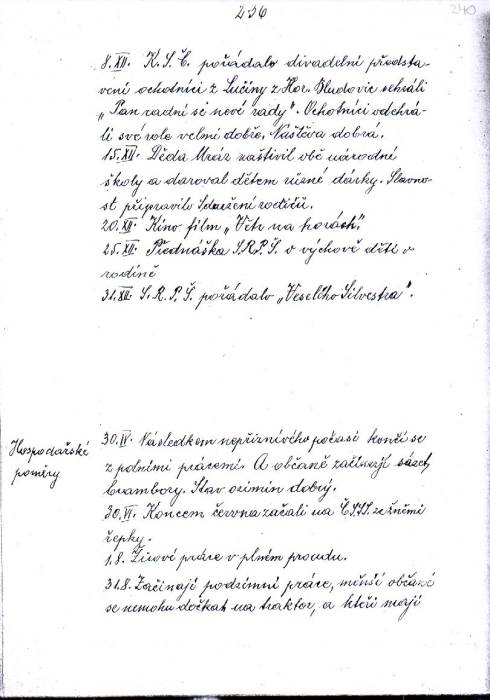 236
240
8.XII. K.S.Č. pořádalo divadelní předsta-
vení ochotníci z Lučiny z Hor. Bludovic sehráli
„Pan radní si neví rady". Ochotníci odehrá-
li své role velmi dobře. Návštěva dobrá.
15.XII. Děda Mráz navštívil obě národné
školy a daroval dětem různé dárky. Slavno-
st připravilo Sdružení rodičů.
20.XII. Kino film „Vítr na horách".
25.XII. Přednáška S.R.P.Š. o výchově dětí v
rodině
31.XII. S.R.P.Š. pořádalo „Veselého Silvestra".
Hospodářské
poměry
30.IV. Následkem nepříznivého počasí končí se
z polními pracemi. A občané začínají sázet
brambory. Stav ozimin dobrý.
30.VI. Koncem června začali na ČSSS. ze žněmi
řepky.
1.8. Žňové práce v plném proudu.
31.8. Začínají podzimní práce, menší občané
se nemohu dočkat na traktor, a kteří mají